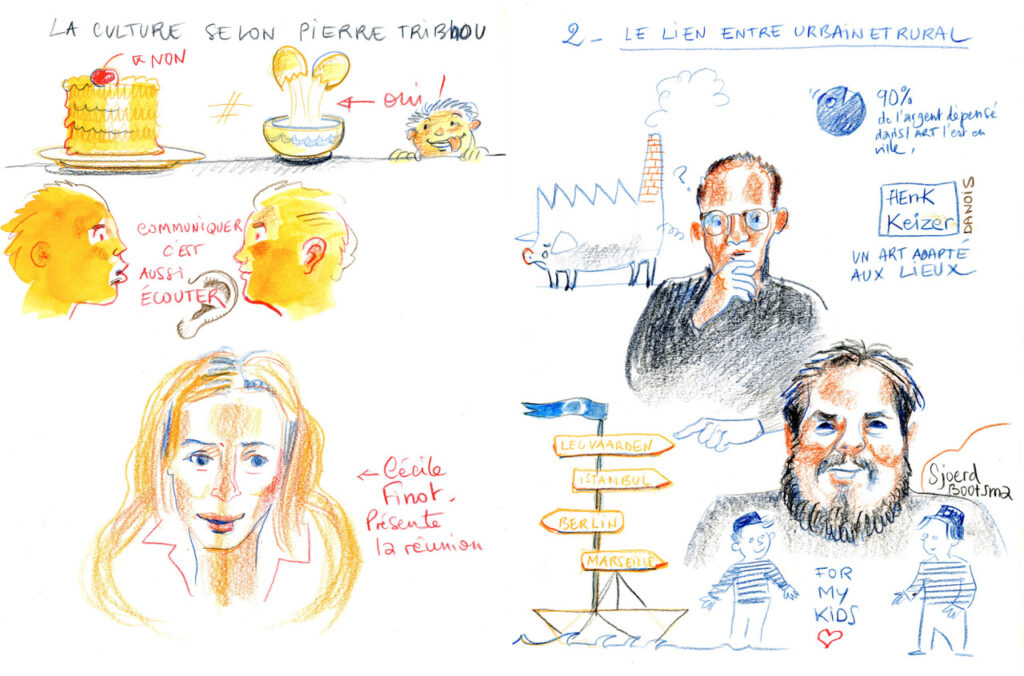 LA CULTURE SELON PIERRE TRIBHOU
NON
≠
oui!
COMMUNIQUER
C'EST
AUSSI
ÉCOUTER
← Cécile
Finot.
Présente
la réunion
2- LE LIEN ENTRE URBAIN ET RURAL
90%
de l'argent dépensé
dans l'ART l'est en
ville,
?
HEnK
KeizeR
DANOIS
UN ART ADAPTÉ
AUX LIEUX
LEUVAARDEN
ISTANBUL
BERLIN
MARSEILLE
Sjoerd
Bootsma
FOR
MY
KIDS